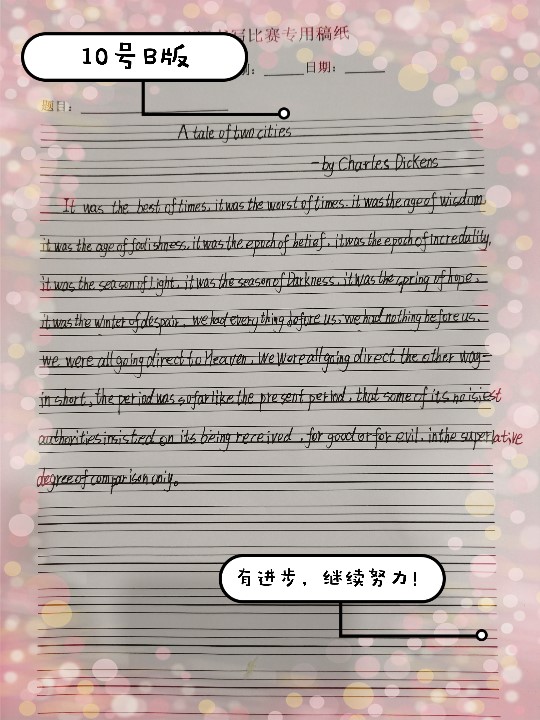 10号B版
写比赛专用稿纸
日期：
题目：
A tale of two cities
-by Charles Dickens
It was the best of times, it was the worst of times, it was the age of wisdom,
it was the age of foolishness, it was the epoch of belief, it was the epoch of incredulity,
it was the season of Light, it was the season of Darkness, it was the spring of hope,
it was the winter of despair, we had everything before us, we had nothing before us,
we were all going direct to Heaven, we were all going direct the other way-
in short, the period was so far like the present period, that some of its noisiest
authorities insisted on its being received, for good or for evil, in the superlative
degree of comparison only。
有进步，继续努力！